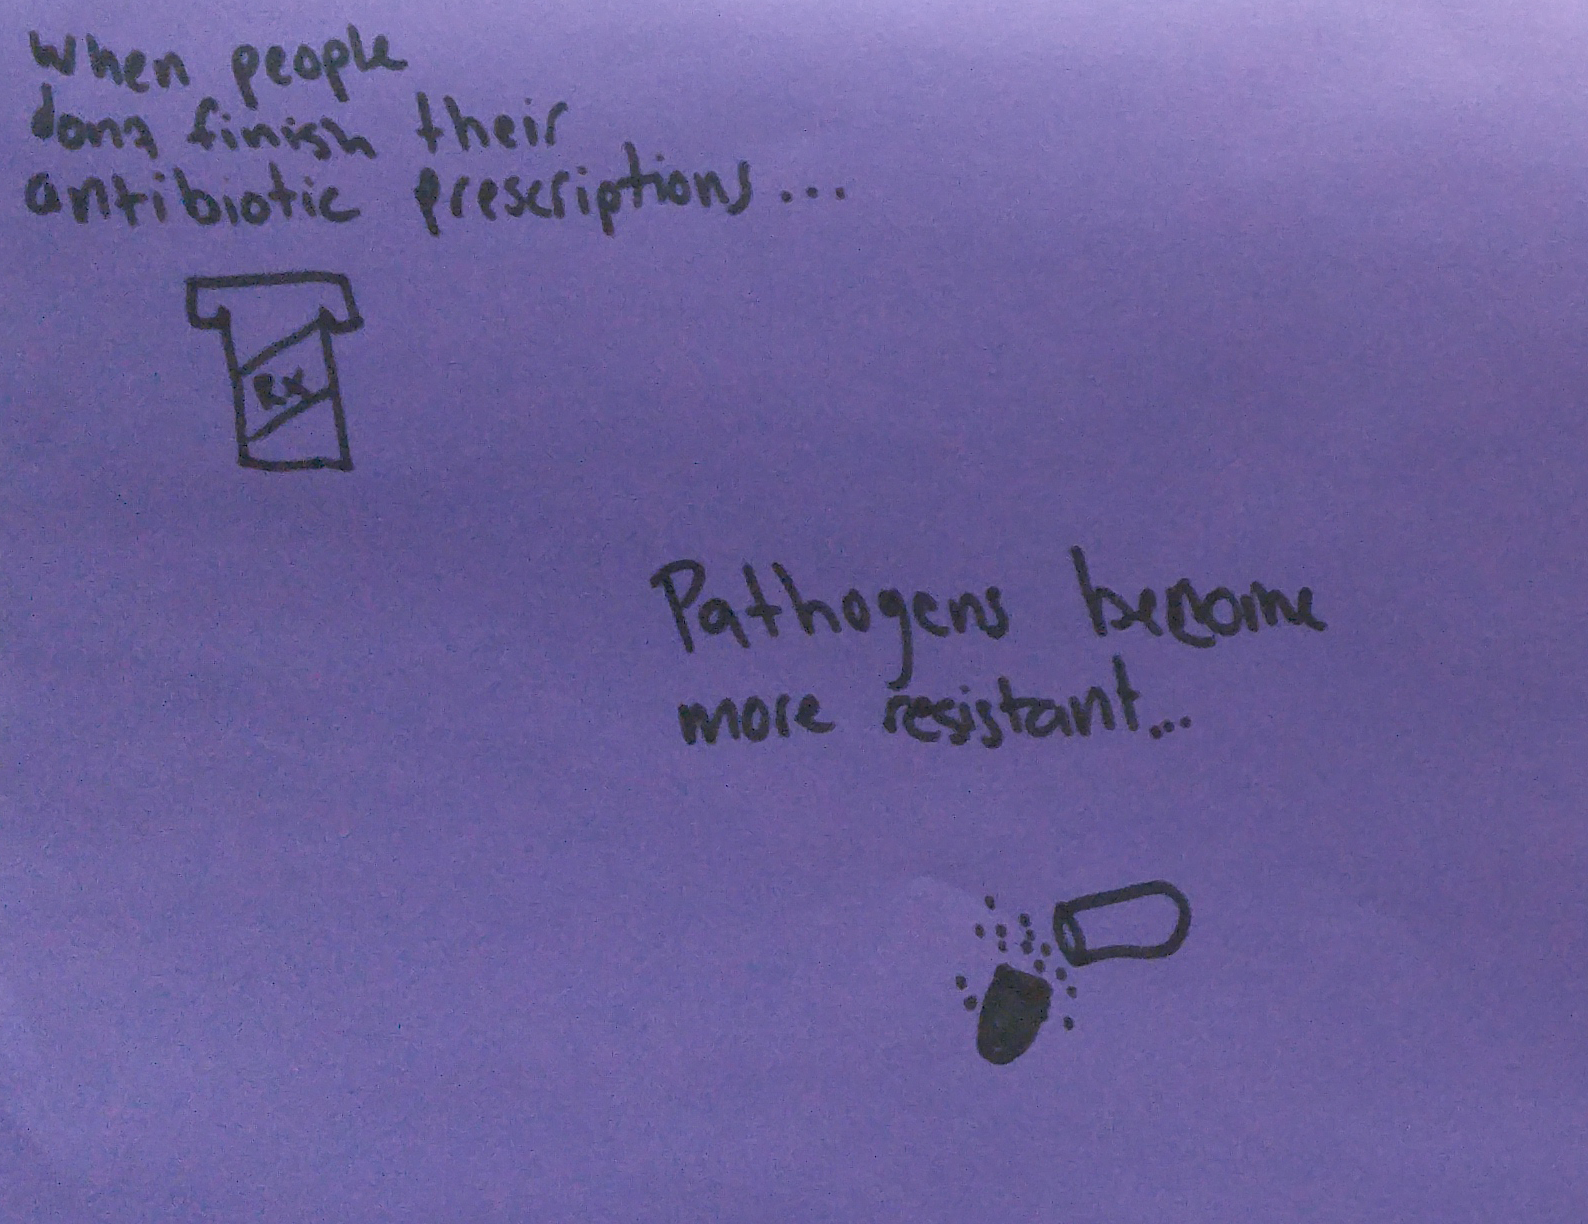 When people
dont finish their
antibiotic prescriptions...
RX
Pathogens become
more resistant...